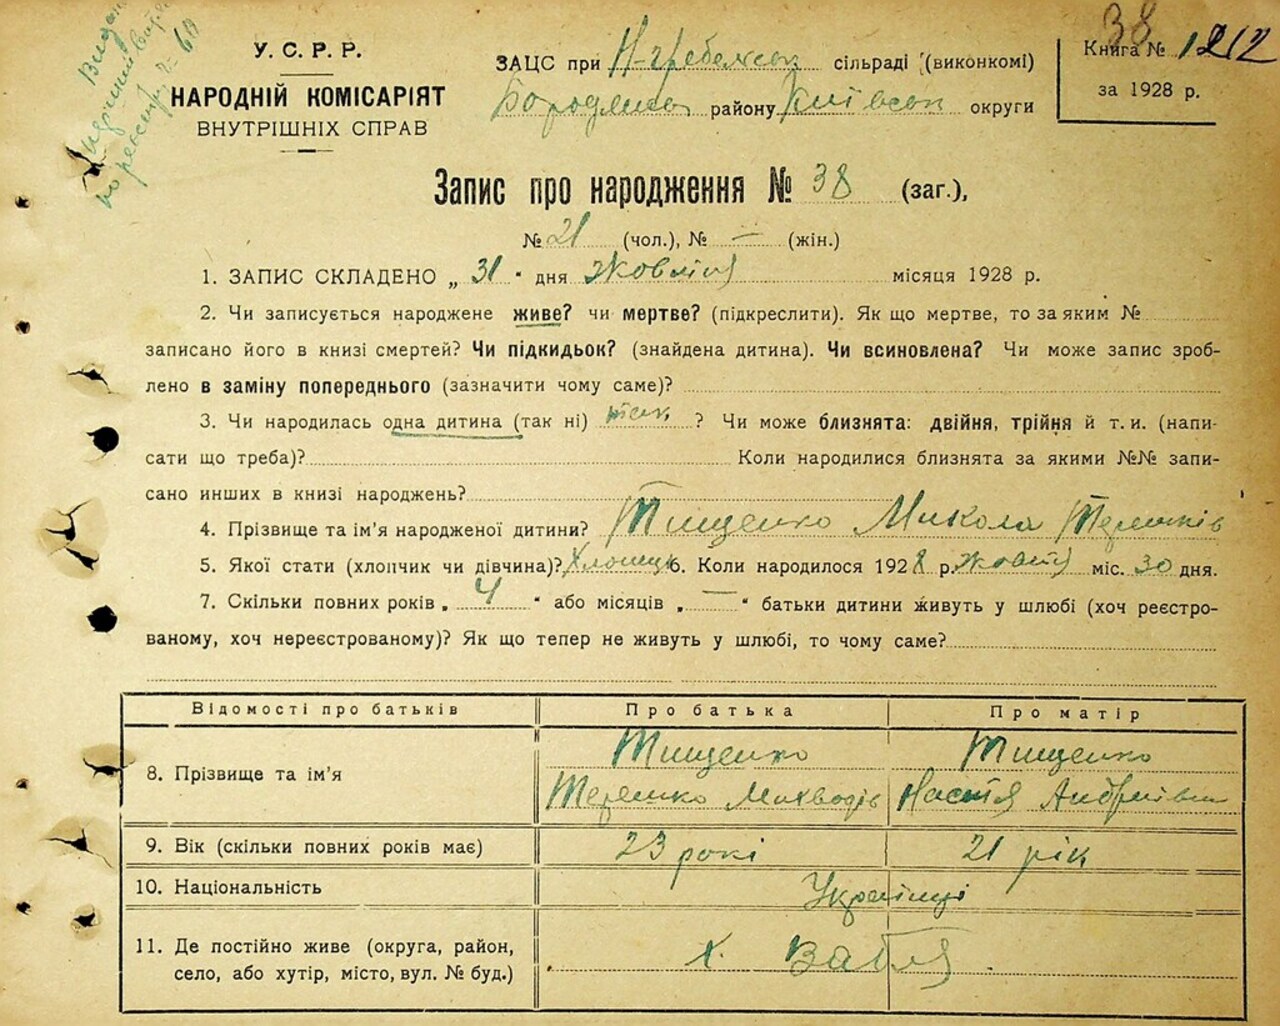 38
У.С.Р.Р.
НАРОДНІЙ КОМІСАРІЯТ
ВНУТРІШНІХ СПРАВ
ЗАЦС при Н-Гребельск сільраді (виконкомі)
району Київськ округи
Книга № 1212
за 1928 р.
Запис про народження № 38 (заг.),
№ 21 (чол.), № — (жін.)
1. ЗАПИС СКЛАДЕНО „ 31 " дня Жовтня місяця 1928 р.
2. Чи записується народжене живе? чи мертве? (підкреслити). Як що мертве, то за яким №
записано його в книзі смертей? Чи підкидьок? (знайдена дитина). Чи всиновлена? Чи може запис зроб-
лено в заміну попереднього (зазначити чому саме)?
3. Чи народилась одна дитина (так ні) так ? Чи може близнята: двійня, трійня й т. и. (напи-
сати що треба)? Коли народилися близнята за якими №№ запи-
сано инших в книзі народжень?
4. Прізвище та ім'я народженої дитини? Тищенко Микола Терешків
5. Якої стати (хлопчик чи дівчина)? Хлопець 6. Коли народилося 1928 р. Жовтня міс. 30 дня.
7. Скільки повних років „ 4 " або місяців „ — " батьки дитини живуть у шлюбі (хоч реєстро-
ваному, хоч нереєстрованому)? Як що тепер не живуть у шлюбі, то чому саме?
Відомості про батьків Про батька Про матір
8. Прізвище та ім'я Тищенко Тищенко
Терешко Настя Андріївна
9. Вік (скільки повних років має) 23 роки 21 рік
10. Національність Українці
11. Де постійно живе (округа, район,
село, або хутір, місто, вул. № буд.) х. Вабля